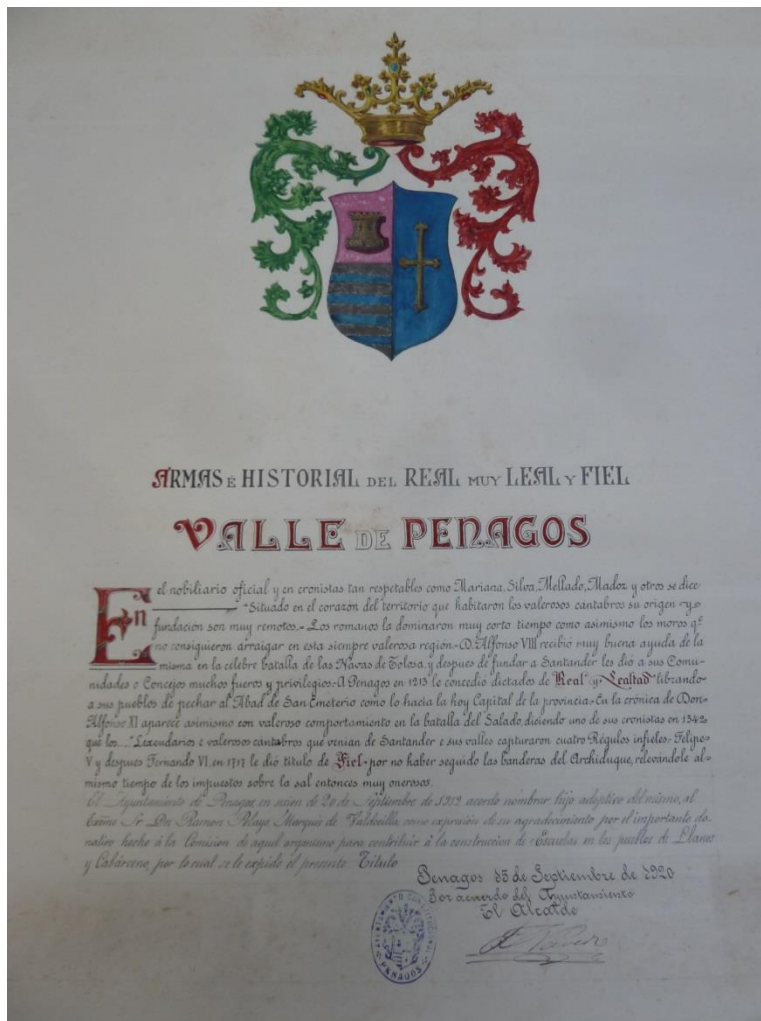 ARMAS É HISTORIAL DEL REAL MUY LEAL Y FIEL
VALLE DE PENAGOS
En el nobiliario oficial y en cronistas tan respetables como Mariana, Silva, Mellado, Madoz y otros se dice
"Situado en el corazón del territorio que habitaron los valerosos cántabros su origen y
fundación son muy remotos.- Los romanos la dominaron muy corto tiempo como asimismo los moros qe
no consiguieron arraigar en esta siempre valerosa región.- D. Alfonso VIII recibió muy buena ayuda de la
misma en la célebre batalla de las Navas de Tolosa y despues de fundar a Santander les dió a sus Comu-
nidades o Concejos muchos fueros y privilegios.- A Penagos en 1213 le concedió dictados de Real y Lealtad librando
a sus pueblos de pechar al Abad de San Emeterio como lo hacia la hoy Capital de la provincia.- En la crónica de Don
Alfonso XI aparece asimismo con valeroso comportamiento en la batalla del Salado diciendo uno de sus cronistas en 1342
que los..."Lexendarios e valerosos cantabros que venian de Santander e sus valles capturaron cuatro Régulos infieles.- Felipe
V y despues Fernando VI, en 1717 le dió título de Fiel por no haber seguido las banderas del Archiduque, relevándole al
mismo tiempo de los impuestos sobre la sal entonces muy onerosos.
El Ayuntamiento de Penagos en sesión de 20 de Septiembre de 1919 acordó nombrar hijo adoptivo del mismo, al
Excmo Sr Don Ramon Pelayo, Marques de Valdecilla, como expresión de su agradecimiento por el importante do-
nativo hecho á la Comision de aquel organismo para contribuir á la construccion de Escuelas en los pueblos de Llanos
y Cabárceno, por lo cual se le expide el presente Titulo
Penagos 15 de Septiembre de 1920
Por acuerdo del Ayuntamiento
El Alcalde
AYUNTAMIENTO CONSTITUCIONAL
PENAGOS